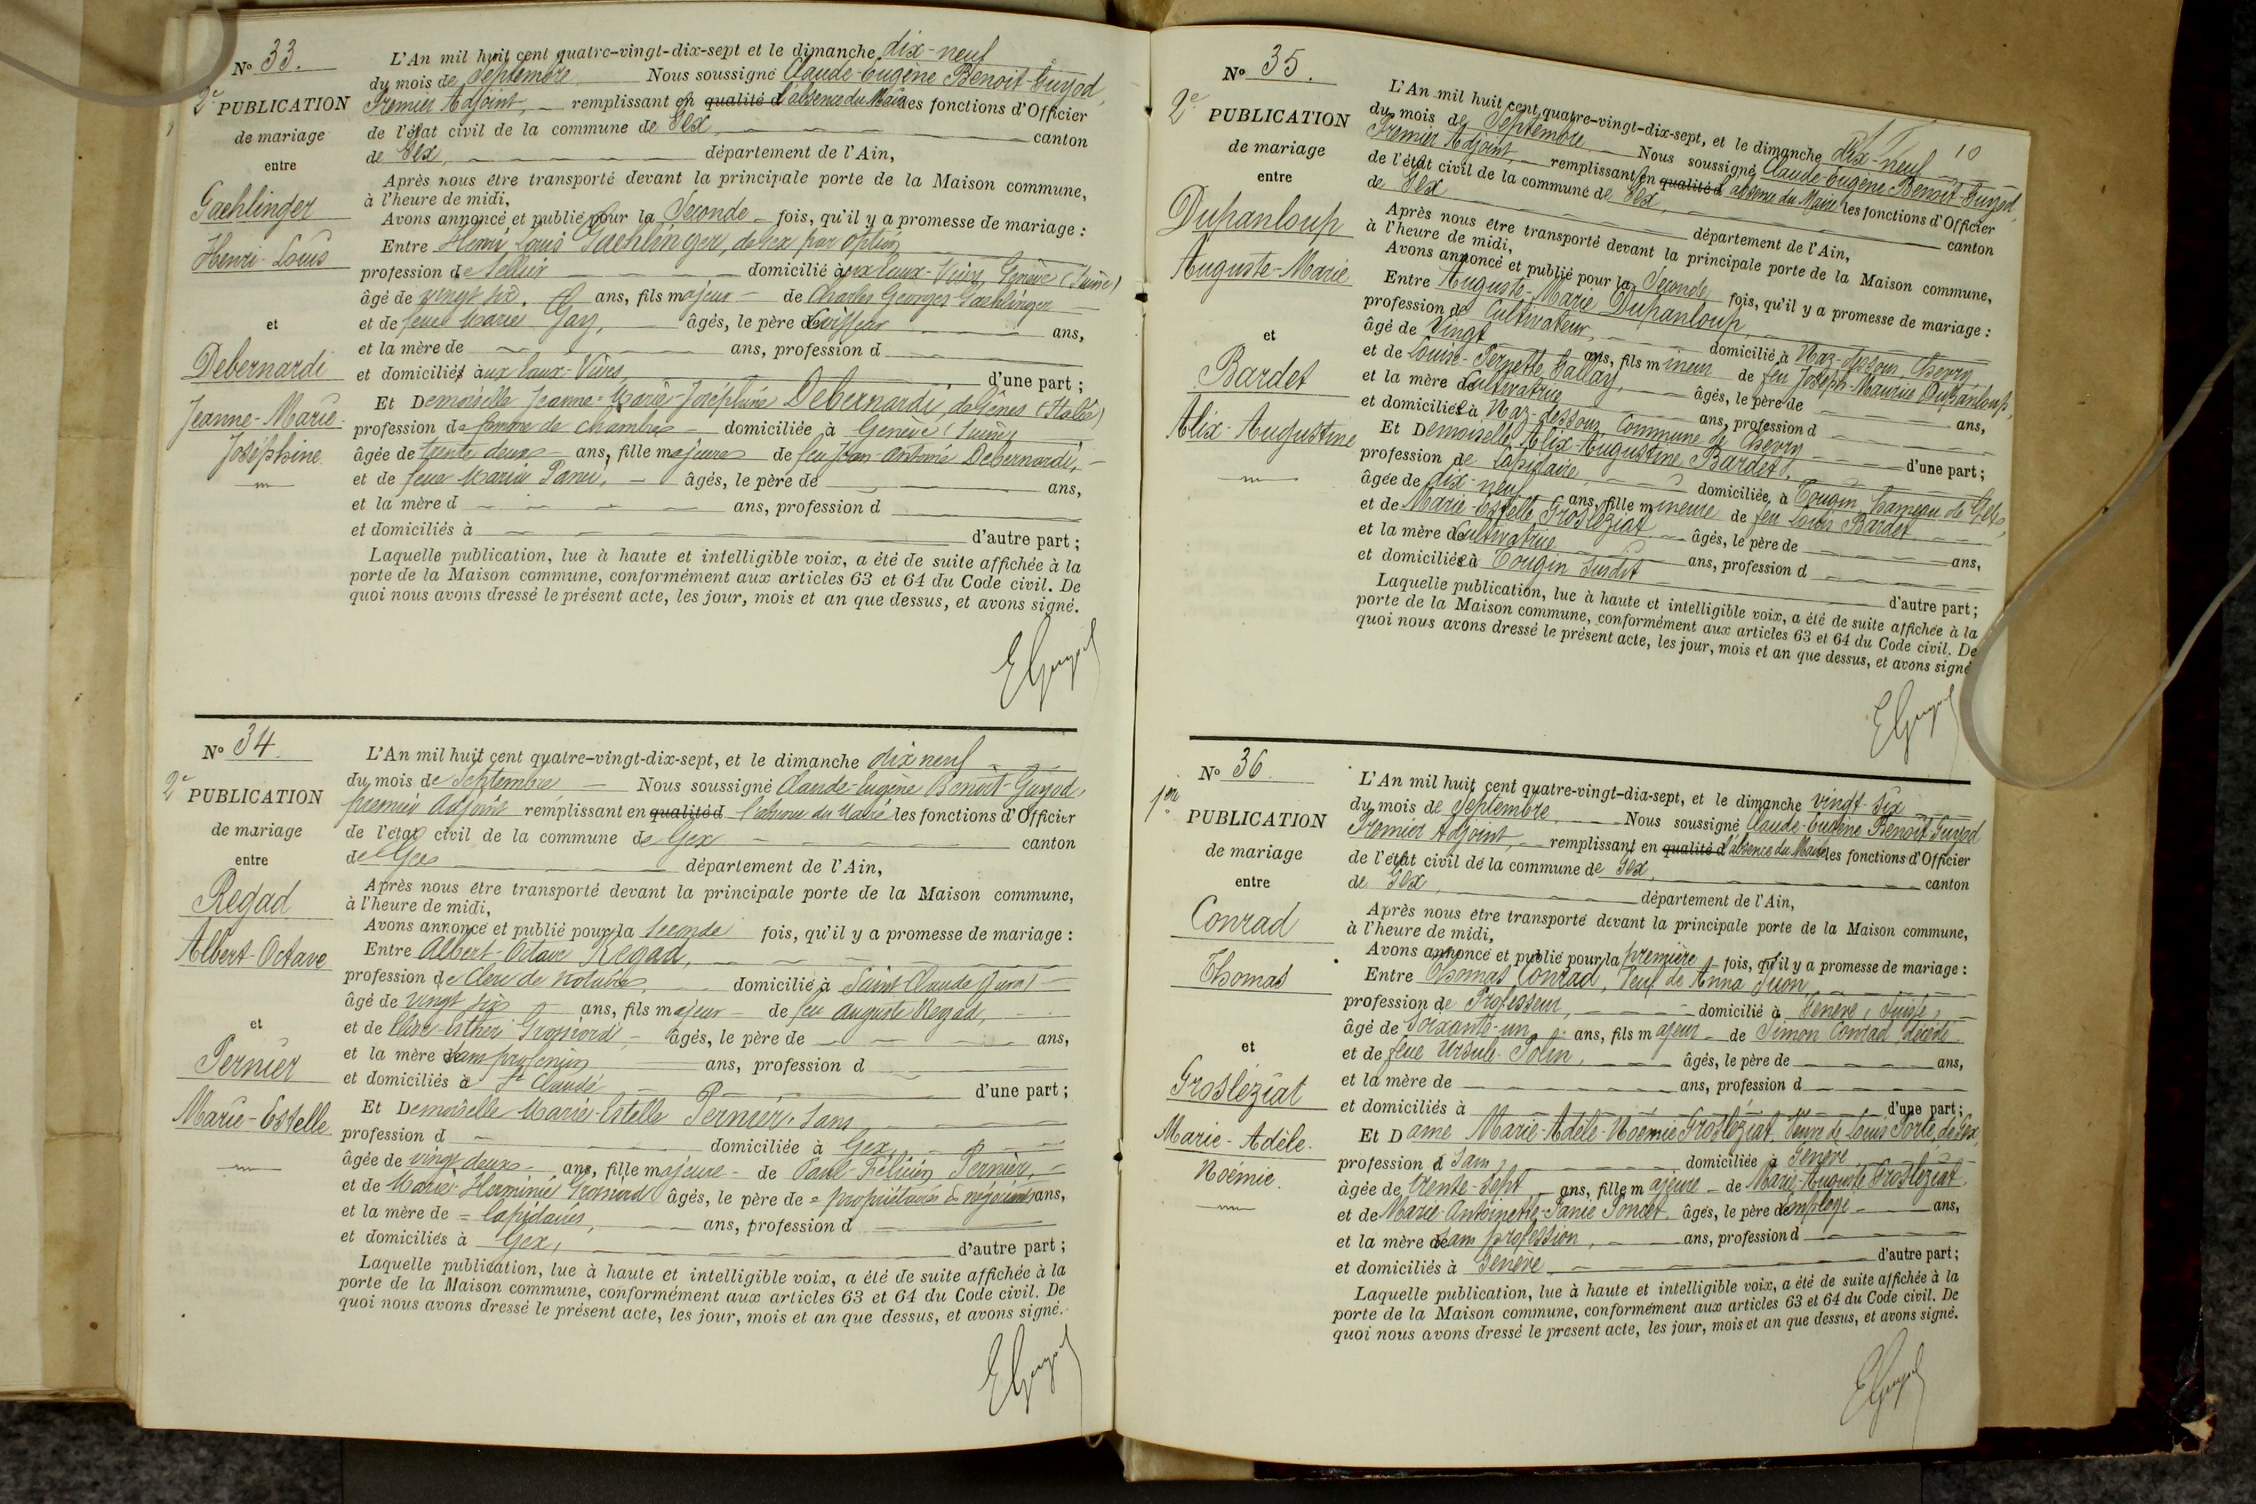 N° 33.
2e PUBLICATION
de mariage
entre
Gaehlinger
Henri-Louis
et
Debernardi
Jeanne-Marie
Joséphine
L'An mil huit cent quatre-vingt-dix-sept et le dimanche dix-neuf
du mois de Septembre Nous soussigné Claude-Eugène Benoit-Guyod,
Premier Adjoint, remplissant en qualité d l'absence du Maire les fonctions d'Officier
de l'état civil de la commune de Gex, canton
de Gex, département de l'Ain,
Après nous être transporté devant la principale porte de la Maison commune,
à l'heure de midi,
Avons annoncé et publié pour la Seconde fois, qu'il y a promesse de mariage :
Entre Henri Louis Gaehlinger, de Gex par option
profession de Sellier domicilié à aux Eaux-Vives, Genève (Suisse)
âgé de vingt six ans, fils majeur de Charles Georges Gaehlinger
et de feue Marie Gay, âgés, le père de Coiffeur ans,
et la mère de ans, profession d
et domiciliés à aux Eaux-Vives d'une part ;
Et Demoiselle Jeanne-Marie-Joséphine Debernardi, de Gênes (Italie)
profession de femme de chambre domiciliée à Genève (Suisse)
âgée de trente deux ans, fille majeure de feu Jean-Antoine Debernardi,
et de feue Maria âgés, le père de ans,
et la mère d ans, profession d
et domiciliés à d'autre part ;
Laquelle publication, lue à haute et intelligible voix, a été de suite affichée à la
porte de la Maison commune, conformément aux articles 63 et 64 du Code civil. De
quoi nous avons dressé le présent acte, les jour, mois et an que dessus, et avons signé.
EGuyod
N° 34.
2e PUBLICATION
de mariage
entre
Regad
Albert-Octave
et
Pernier
Marie-Estelle
L'An mil huit cent quatre-vingt-dix-sept, et le dimanche dix neuf
du mois de Septembre Nous soussigné Claude-Eugène Benoît-Guyod,
premier Adjoint remplissant en qualité d l'absence du Maire les fonctions d'Officier
de l'état civil de la commune de Gex canton
de Gex département de l'Ain,
Après nous être transporté devant la principale porte de la Maison commune,
à l'heure de midi,
Avons annoncé et publié pour la Seconde fois, qu'il y a promesse de mariage :
Entre Albert-Octave Regad,
profession de Clerc de Notaire, domicilié à Saint Claude (Jura)
âgé de vingt six ans, fils majeur de feu Auguste Regad,
et de Elise-Esther Grosnord âgés, le père de ans,
et la mère de sans profession ans, profession d
et domiciliés à St Claude d'une part ;
Et Demoiselle Marie-Estelle Pernier, sans
profession d domiciliée à Gex,
âgée de vingt deux ans, fille majeure de Paul Félicien Pernier,
et de Marie Herminie Grosnord âgés, le père de = propriétaire & négociant ans,
et la mère de = lapidaires, ans, profession d
et domiciliés à Gex, d'autre part ;
Laquelle publication, lue à haute et intelligible voix, a été de suite affichée à la
porte de la Maison commune, conformément aux articles 63 et 64 du Code civil. De
quoi nous avons dressé le présent acte, les jour, mois et an que dessus, et avons signé.
EGuyod
10
N° 35.
2e PUBLICATION
de mariage
entre
Dupanloup
Auguste-Marie
et
Bardet
Alix-Augustine
L'An mil huit cent quatre-vingt-dix-sept, et le dimanche dix-neuf
du mois de Septembre Nous soussigné Claude-Eugène Benoit-Guyod,
Premier Adjoint, remplissant en qualité d l'absence du Maire les fonctions d'Officier
de l'état civil de la commune de Gex, canton
de Gex département de l'Ain,
Après nous être transporté devant la principale porte de la Maison commune,
à l'heure de midi,
Avons annoncé et publié pour la Seconde fois, qu'il y a promesse de mariage :
Entre Auguste-Marie Dupanloup,
profession de Cultivateur, domicilié à Naz-dessous Chevry
âgé de Vingt ans, fils mineur de feu Joseph-Maurice Dupanloup,
et de Louise-Pernette Vallay, âgés, le père de ans,
et la mère de Cultivatrice ans, profession d
et domiciliés à Naz-dessous Commune de Chevry d'une part ;
Et Demoiselle Alix-Augustine Bardet,
profession de Lapidaire, domiciliée à Tougin hameau de Gex,
âgée de dix-neuf ans, fille mineure de feu Louis Bardet
et de Marie-Estelle Grosléziat âgés, le père de ans,
et la mère de Cultivatrice ans, profession d
et domiciliés à Tougin susdit d'autre part ;
Laquelle publication, lue à haute et intelligible voix, a été de suite affichée à la
porte de la Maison commune, conformément aux articles 63 et 64 du Code civil. De
quoi nous avons dressé le présent acte, les jour, mois et an que dessus, et avons signé
EGuyod
N° 36.
1ère PUBLICATION
de mariage
entre
Conrad
Thomas
et
Grosléziat
Marie-Adèle-
Noémie
L'An mil huit cent quatre-vingt-dix-sept, et le dimanche vingt-six
du mois de Septembre Nous soussigné Claude-Eugène Benoît-Guyod
Premier Adjoint, remplissant en qualité d l'absence du Maire les fonctions d'Officier
de l'état civil de la commune de Gex, canton
de Gex, département de l'Ain,
Après nous être transporté devant la principale porte de la Maison commune,
à l'heure de midi,
Avons annoncé et publié pour la première fois, qu'il y a promesse de mariage :
Entre Thomas Conrad, Veuf de Anna
profession de Professeur, domicilié à Genève, Suisse,
âgé de Soixante-un ans, fils majeur de Simon Conrad décédé
et de feue Ursule Polin, âgés, le père de ans,
et la mère de ans, profession d
et domiciliés à d'une part ;
Et Dame Marie-Adèle-Noémie Grosléziat, Veuve de Louis Porte, de Gex,
profession d Sans, domiciliée à Genève
âgée de trente-sept ans, fille majeure de Marie-Auguste Grosléziat
et de Marie-Antoinette-Fanie Poncet, âgés, le père d employé ans,
et la mère de sans profession, ans, profession d
et domiciliés à Genève d'autre part ;
Laquelle publication, lue à haute et intelligible voix, a été de suite affichée à la
porte de la Maison commune, conformément aux articles 63 et 64 du Code civil. De
quoi nous avons dressé le présent acte, les jour, mois et an que dessus, et avons signé.
EGuyod